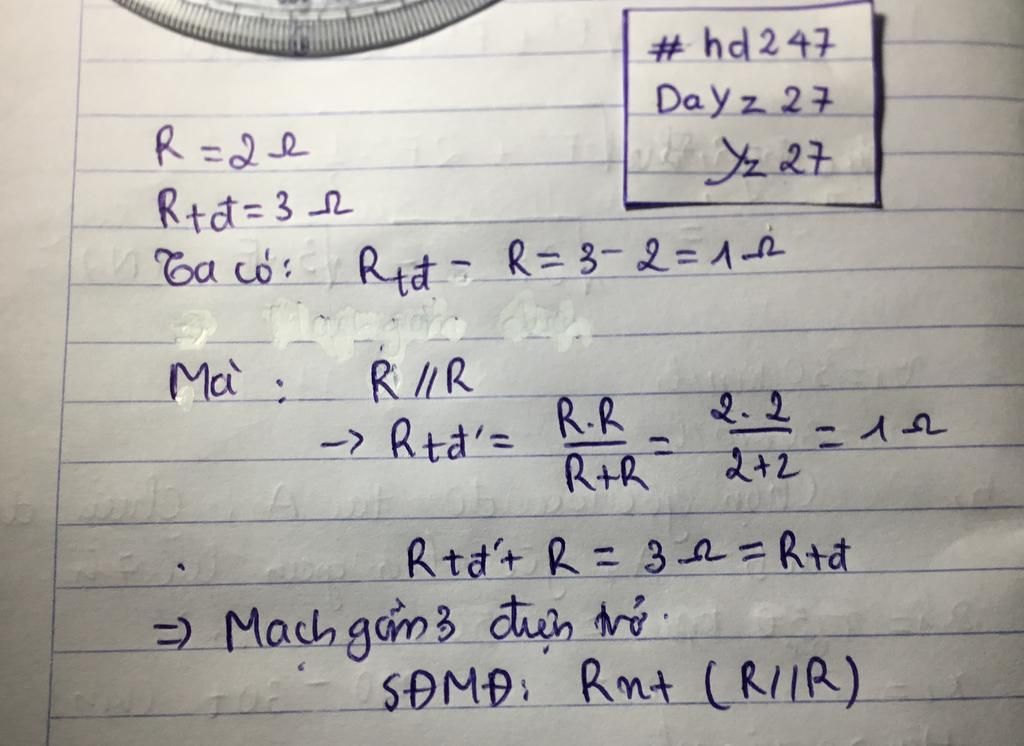 # hd247
Dayz 27
Yz 27
R = 2 Ω
Rtđ = 3 Ω
Ta có: Rtđ - R = 3 - 2 = 1 Ω
Mà : R // R
-> Rtđ' = R.R / R+R = 2.2 / 2+2 = 1 Ω
Rtđ' + R = 3 Ω = Rtđ
=> Mạch gồm 3 điện trở.
SĐMĐ: R nt (R//R)